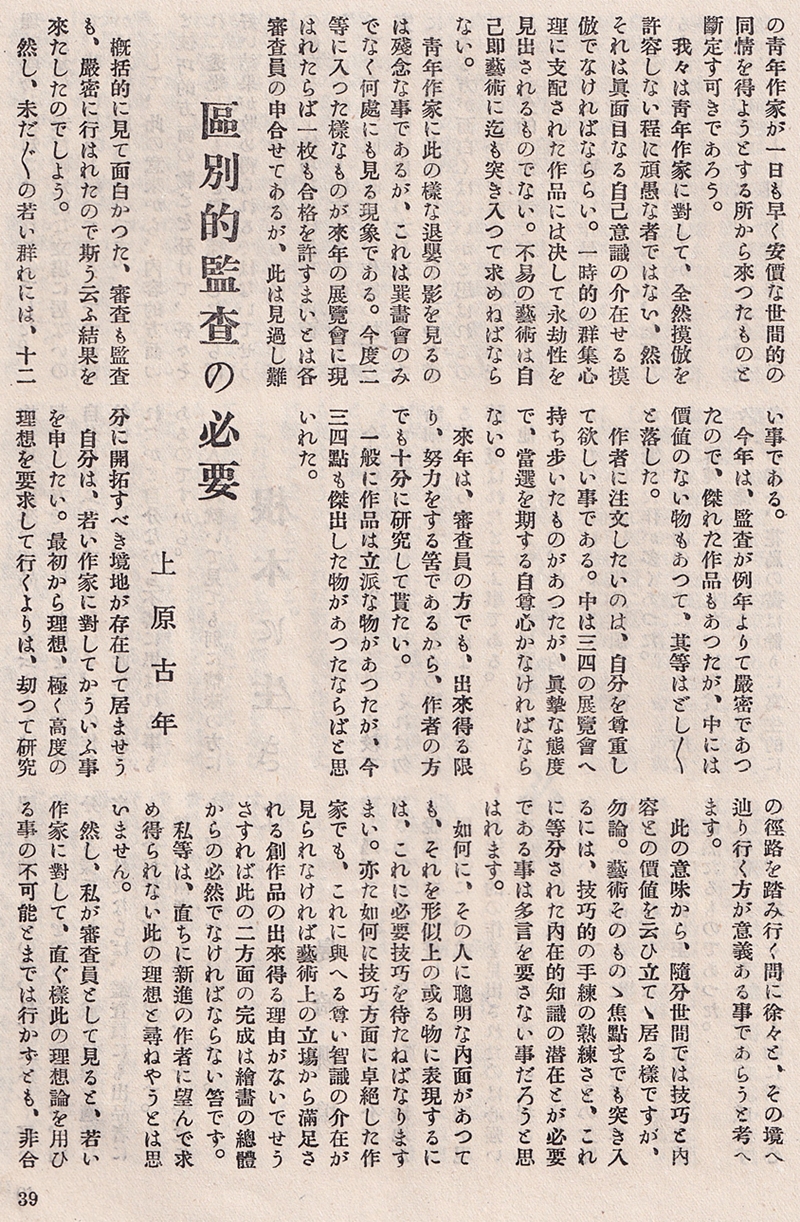 の青年作家が一日も早く安價な世間的の
同情を得ようとする所から來つたものと
斷定す可きであろう。
我々は青年作家に對して、全然摸倣を
許容しない程に頑愚な者ではない、然し
それは眞面目なる自己意識の介在せる摸
倣でなければならない。一時的の群集心
理に支配された作品には決して永劫性を
見出されるものでない。不易の藝術は自
己即藝術に迄も突き入つて求めねばなら
ない。
青年作家に此の樣な退嬰の影を見るの
は殘念な事であるが、これは巽畵會のみ
でなく何處にも見る現象である。今度二
等に入つた樣なものが來年の展覽會に現
はれたらば一枚も合格を許すまいとは各
審査員の申合せてあるが、此は見過し難
い事である。
今年は、監査が例年よりて嚴密であつ
たので、傑れた作品もあつたが、中には
價値のない物もあつて、其等はどし〳〵
と落した。
作者に注文したいのは、自分を尊重し
て欲しい事である。中は三四の展覽會へ
持ち歩いたものがあつたが、眞摯な態度
で、當選を期する自尊心かなければなら
ない。
來年は、審査員の方でも、出來得る限
り、努力をする筈であるから、作者の方
でも十分に研究して貰たい。
一般に作品は立派な物があつたが、今
三四點も傑出した物があつたならばと思
いれた。
區別的監査の必要
上原古年
槪括的に見て面白かつた、審査も監査
も、嚴密に行はれたので斯う云ふ結果を
來たしたのでしよう。
然し、未だ〳〵の若い群れには、十二
分に開拓すべき境地が存在して居ませう
自分は、若い作家に對してかういふ事
を申したい。最初から理想、極く高度の
理想を要求して行くよりは、刧つて研究
の徑路を踏み行く間に徐々と、その境へ
辿り行く方が意義ある事であらうと考へ
ます。
此の意味から、隨分世間では技巧と內
容との價値を云ひ立てゝ居る樣ですが、
勿論。藝術そのものゝ焦點までも突き入
るには、技巧的の手練の熟練さと、これ
に等分された內在的知識の潛在とが必要
である事は多言を要さない事だろうと思
はれます。
如何に、その人に聰明な內面があつて
も、それを形似上の或る物に表現するに
は、これに必要技巧を待たねばなります
まい。亦た如何に技巧方面に卓絕した作
家でも、これに與へる尊い智識の介在が
見られなければ藝術上の立塲から滿足さ
れる創作品の出來得る理由がないでせう
さすれば此の二方面の完成は繪畵の總體
からの必然でなければならない筈です。
私等は、直ちに新進の作者に望んで求
め得られない此の理想と尋ねやうとは思
いません。
然し、私が審査員として見ると、若い
作家に對して、直ぐ樣此の理想論を用ひ
る事の不可能とまでは行かずとも、非合
39